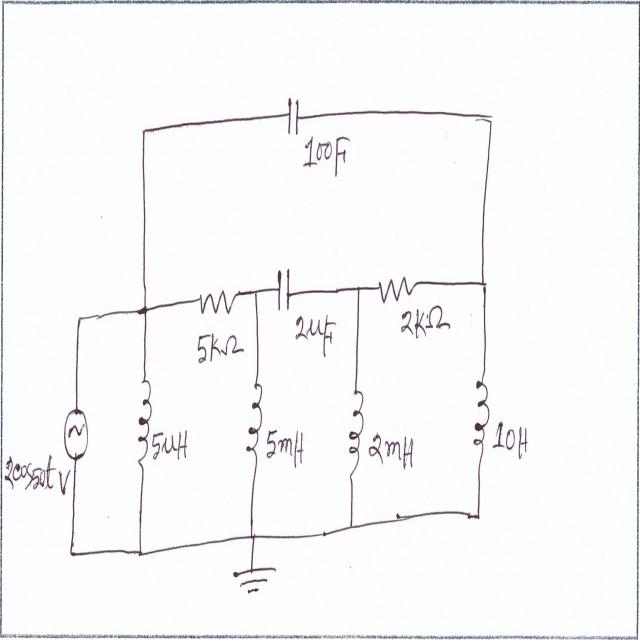 100F
5KΩ
2uF
2KΩ
2cos50t V
5uH
5mH
2mH
10H